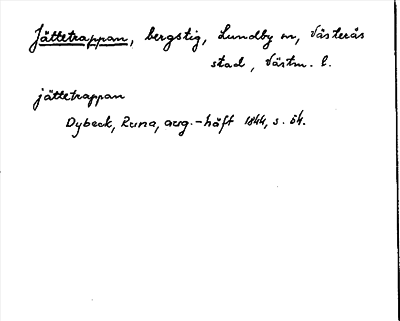 Jättetrappan, bergstig, Lundby sn, Västerås
stad, Västm. l.
jättetrappan
Dybeck, Runa, aug.-häft 1844, s. 64.